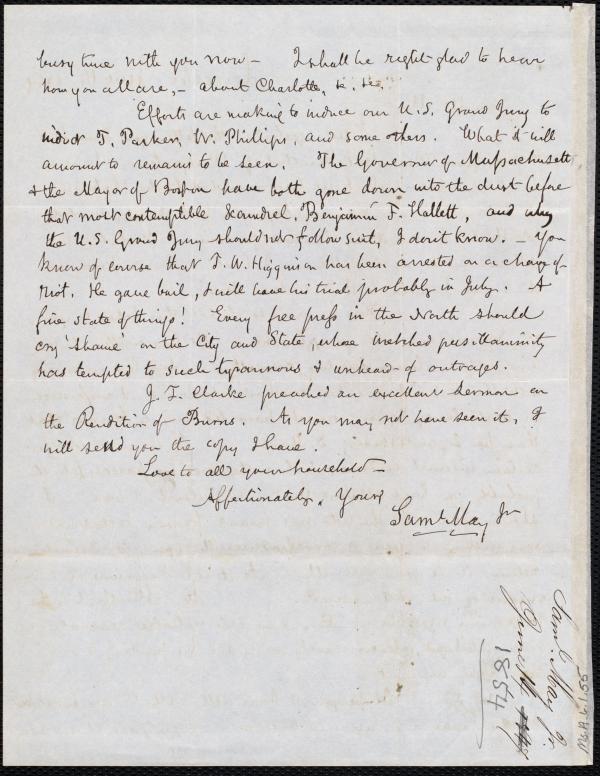 busy time with you now – I shall be right glad to hear
how you all are, – about Charlotte, &c. &c.
Efforts are making to induce our U.S. Grand Jury to
indict T. Parker, W. Phillips, and some others. What it will
amount to remains to be seen. The Governor of Massachusetts
& the Mayor of Boston have both gone down into the dust before
that most contemptible scoundrel, Benjamin F. Hallett, and why
the U.S. Grand Jury should not follow suit, I don't know. – You
know of course that T. W. Higginson has been arrested on a charge of
riot. He gave bail, & will have his trial probably in July. A
fine state of things! Every free press in the North should
cry 'Shame' on the City and State, whose wretched pusillanimity
has tempted to such tyrannous & unheard-of outrages.
J. F. Clarke preached an excellent sermon on
the Rendition of Burns. As you may not have seen it, I
will send you the copy I have.
Love to all your household –
Affectionately, Yours
Saml. May Jr
Saml. May Jr.
June
1854
MS.A.6.1.55